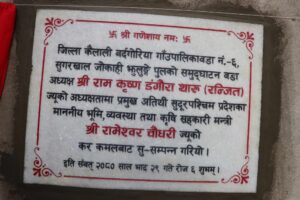 卐 श्री गणेशाय नमः 卐
जिल्ला कैलाली बर्दगोरिया गाँउपालिकावडा नं.-६,
सुगरखाल जोकाही झुलुङ्गे पुलको समुद्घाटन वडा
अध्यक्ष श्री राम कृष्ण डंगौरा थारू (रन्जित)
ज्यूको अध्यक्षतामा प्रमुख अतिथी सुदूरपश्चिम प्रदेशका
माननीय भूमि,व्यवस्था तथा कृषि सहकारी मन्त्री
श्री रामेश्वर चौधरी ज्यूको
कर कमलबाट सु-सम्पन्न गरियो।
इति संबत् २०८० साल भाद्र २९ गते रोज ६ शुभम्।